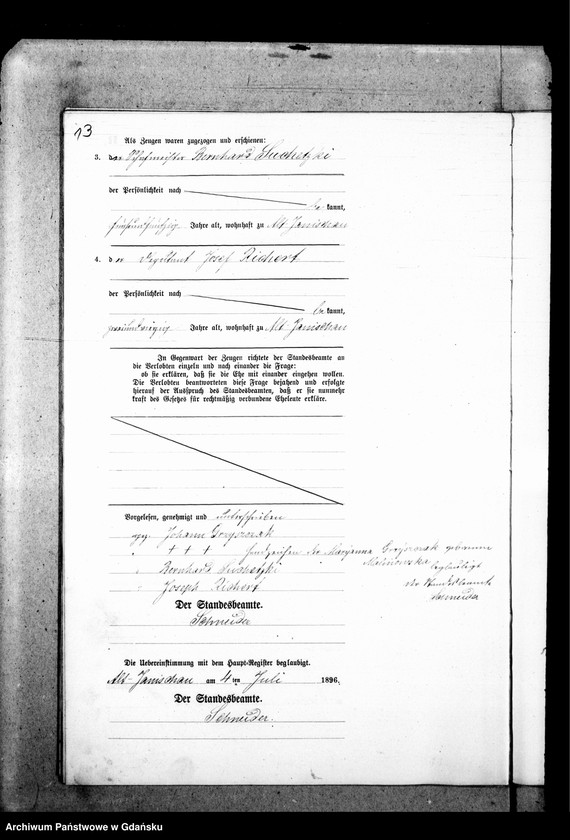 13
Als Zeugen waren zugezogen und erschienen:
3. der Schafmeister Bernhard Suchetzki
der Persönlichkeit nach
be kannt,
fünfundfünfzig Jahre alt, wohnhaft zu Alt Janischau
4. der Deputant Josef Richert
der Persönlichkeit nach
be kannt,
Jahre alt, wohnhaft zu Alt-Janischau
In Gegenwart der Zeugen richtete der Standesbeamte an
die Verlobten einzeln und nach einander die Frage:
ob sie erklären, daß sie die Ehe mit einander eingehen wollen.
Die Verlobten beantworteten diese Frage bejahend und erfolgte
hierauf der Ausspruch des Standesbeamten, daß er sie nunmehr
kraft des Gesetzes für rechtmäßig verbundene Eheleute erkläre.
Vorgelesen, genehmigt und unterschrieben
gez. Johann
" + + + Handzeichen der Maryanna geborenen
Malinowska beglaubigt
Der Standesbeamte
Schneider
" Bernhard Suchetzki
" Joseph Richert
Der Standesbeamte.
Schneider
Die Uebereinstimmung mit dem Haupt-Register beglaubigt.
Alt-Janischau am 4 ten Juli 1896.
Der Standesbeamte.
Schneider.
Archiwum Państwowe w Gdańsku